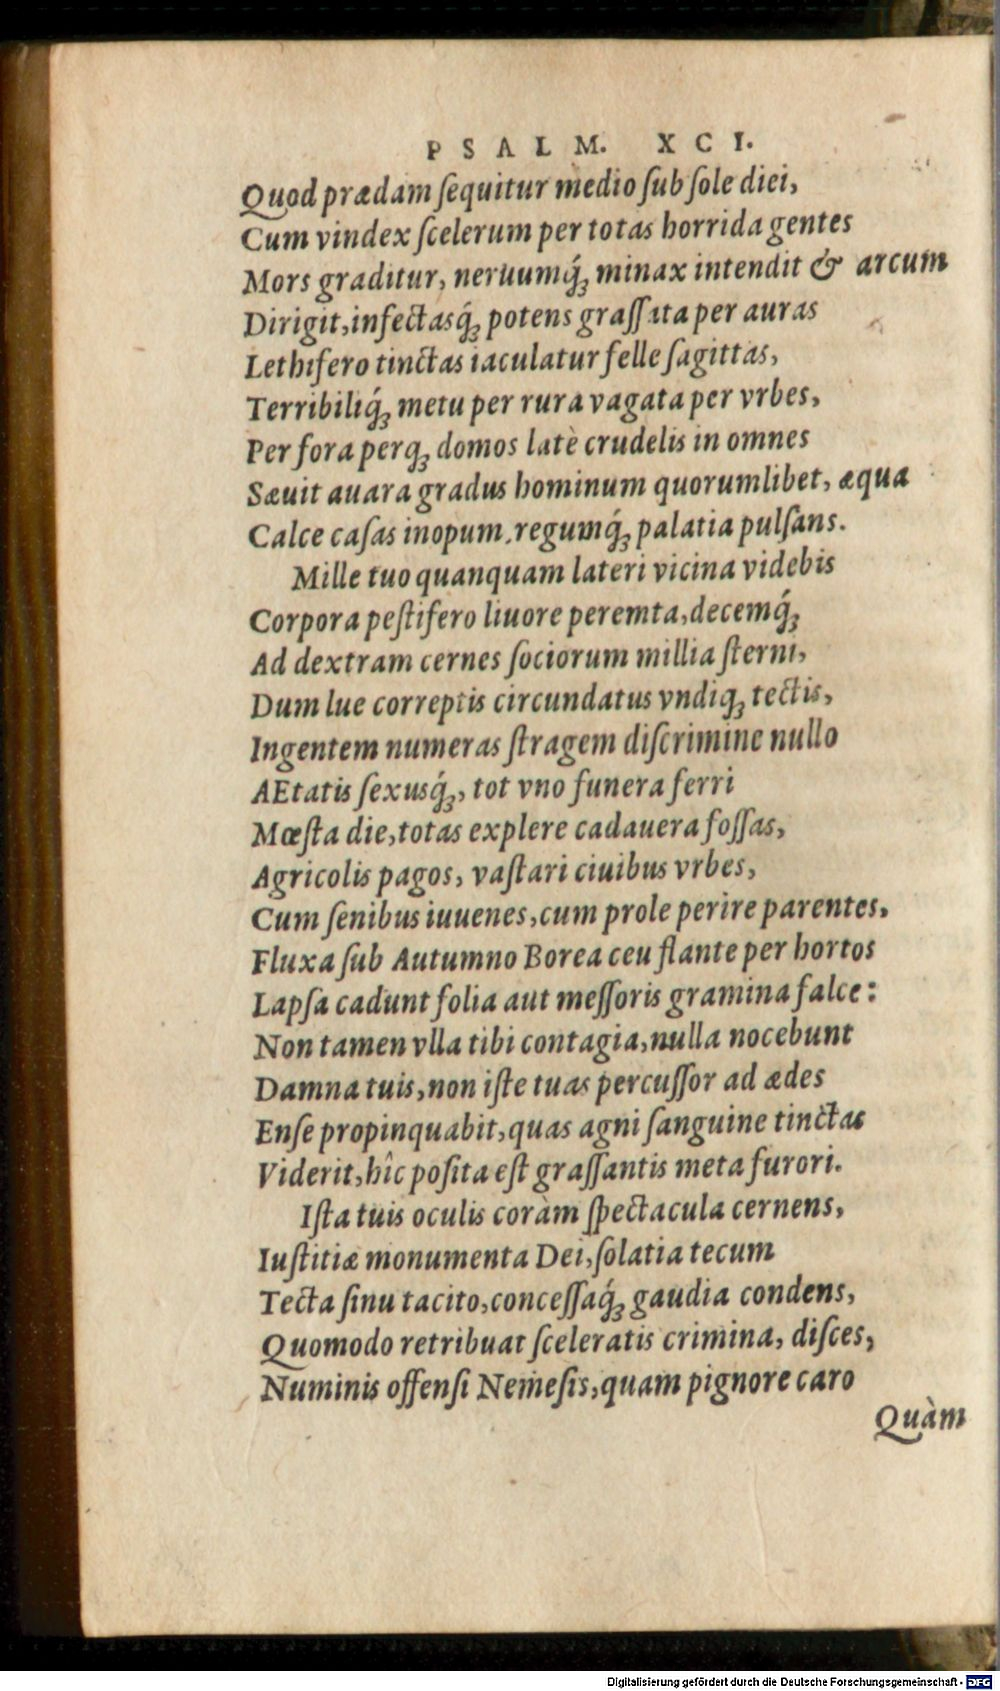 PSALM. XCI.
Quod prædam ſequitur medio ſub ſole diei,
Cum vindex ſcelerum per totas horrida gentes
Mors graditur, neruumq́ꝫ minax intendit & arcum
Dirigit, infectasq́ꝫ potens graſſata per auras
Lethifero tinctas iaculatur felle ſagittas,
Terribiliq́ꝫ metu per rura vagata per vrbes,
Per fora perqꝫ domos latè crudelis in omnes
Sæuit auara gradus hominum quorumlibet, æqua
Calce caſas inopum, regumq́ꝫ palatia pulſans.
Mille tuo quanquam lateri vicina videbis
Corpora peſtifero liuore peremta, decemq́ꝫ
Ad dextram cernes ſociorum millia ſterni,
Dum lue correptis circundatus vndiqꝫ tectis,
Ingentem numeras ſtragem diſcrimine nullo
AEtatis ſexusq́ꝫ, tot vno funera ferri
Mœſta die, totas explere cadauera foſſas,
Agricolis pagos, vaſtari ciuibus vrbes,
Cum ſenibus iuuenes, cum prole perire parentes,
Fluxa ſub Autumno Borea ceu flante per hortos
Lapſa cadunt folia aut meſſoris gramina falce:
Non tamen vlla tibi contagia, nulla nocebunt
Damna tuis, non iſte tuas percuſſor ad ædes
Enſe propinquabit, quas agni ſanguine tinctas
Viderit, hîc poſita eſt graſſantis meta furori.
Iſta tuis oculis coràm ſpectacula cernens,
Iuſtitiæ monumenta Dei, ſolatia tecum
Tecta ſinu tacito, conceſſaq́ꝫ gaudia condens,
Quomodo retribuat ſceleratis crimina, diſces,
Numinis offenſi Nemeſis, quam pignore caro
Quàm
Digitalisierung gefördert durch die Deutsche Forschungsgemeinschaft - DFG